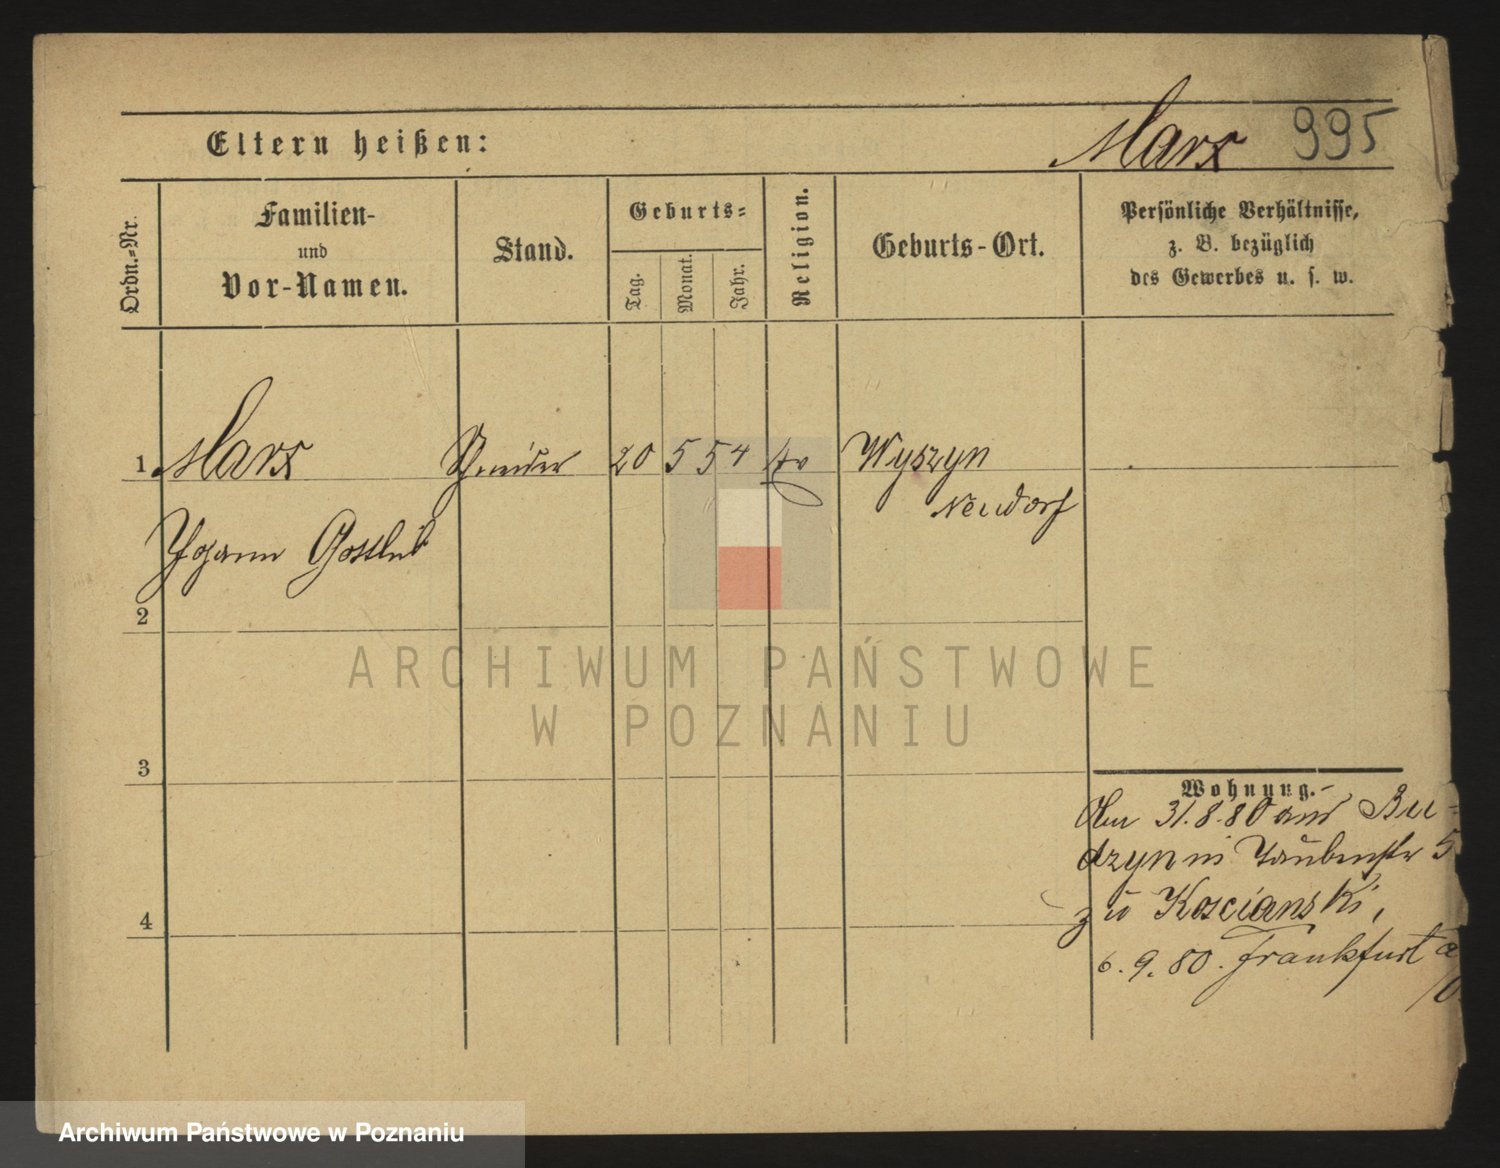 Eltern heißen:
Marx 995
Ordn.-Nr.
Familien-
und
Vor-Namen.
Stand.
Geburts-
Tag.
Monat.
Jahr.
Religion.
Geburts-Ort.
Persönliche Verhältnisse,
z. B. bezüglich
des Gewerbes u. s. w.
1 Marx Schneider 20 5 54 ev Wyszyn
Neudorf
Johann Gottlieb
2
3
4
Wohnung.
Am 31.8.80 aus Bu-
dzyn in Taubenstr 5
zu Koscianski,
6. 9. 80. Frankfurt a
/O.
ARCHIWUM PAŃSTWOWE
W POZNANIU
Archiwum Państwowe w Poznaniu